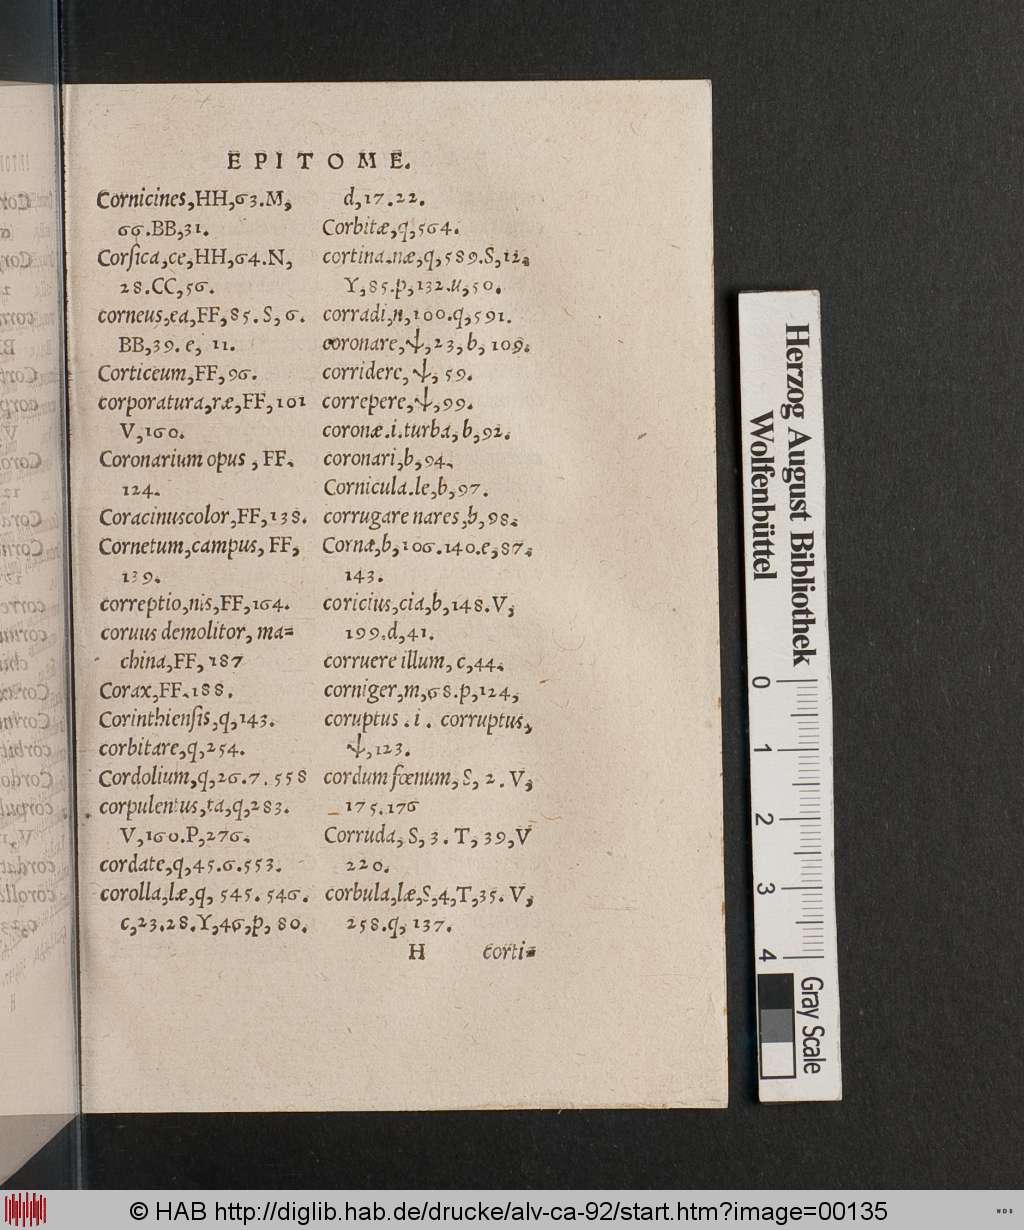 EPITOME.
Cornicines,HH,63.M,
66.BB,31.
Corſica,ce,HH,64.N,
28.CC,56.
corneus,ea,FF,85.S,6.
BB,39.e, 11.
Corticeum,FF,96.
corporatura,ræ,FF,101
V,160.
Coronarium opus , FF.
124.
Coracinuscolor,FF,138.
Cornetum,campus, FF,
139.
correptio,nis,FF,164.
coruus demolitor, ma=
china,FF, 187
Corax,FF.188.
Corinthienſis,q,143.
corbitare,q,254.
Cordolium,q,26.7. 558
corpulentus,ta,q,283.
V,160.P,276.
cordate,q,45.6.553.
corolla,læ,q, 545. 546.
c,23.28.Y,46,p, 80.
d,17.22.
Corbitæ,q,564.
cortina.næ,q,589.S,12.
Y,85.p,132.u,50.
corradi,n,100.q,591.
coronare,ψ,23,b, 109.
corridere,ψ, 59.
correpere,ψ,99.
coronæ.i.turba,b,92.
coronari,b,94.
Cornicula.le,b,97.
corrugare nares,b,98.
Cornæ,b,106.140.e,87.
143.
coricius,cia,b,148.V,
199.d,41.
corruere illum, c,44.
corniger,m,68.p,124,
coruptus .i. corruptus,
ψ,123.
cordum fœnum, S, 2. V,
175.176
Corruda, S, 3. T, 39,V
220.
corbula,læ,S,4,T,35. V,
258.q, 137.
H corti=
Herzog August Bibliothek
Wolfenbüttel
0 1 2 3 4
Gray Scale
© HAB http://diglib.hab.de/drucke/alv-ca-92/start.htm?image=00135